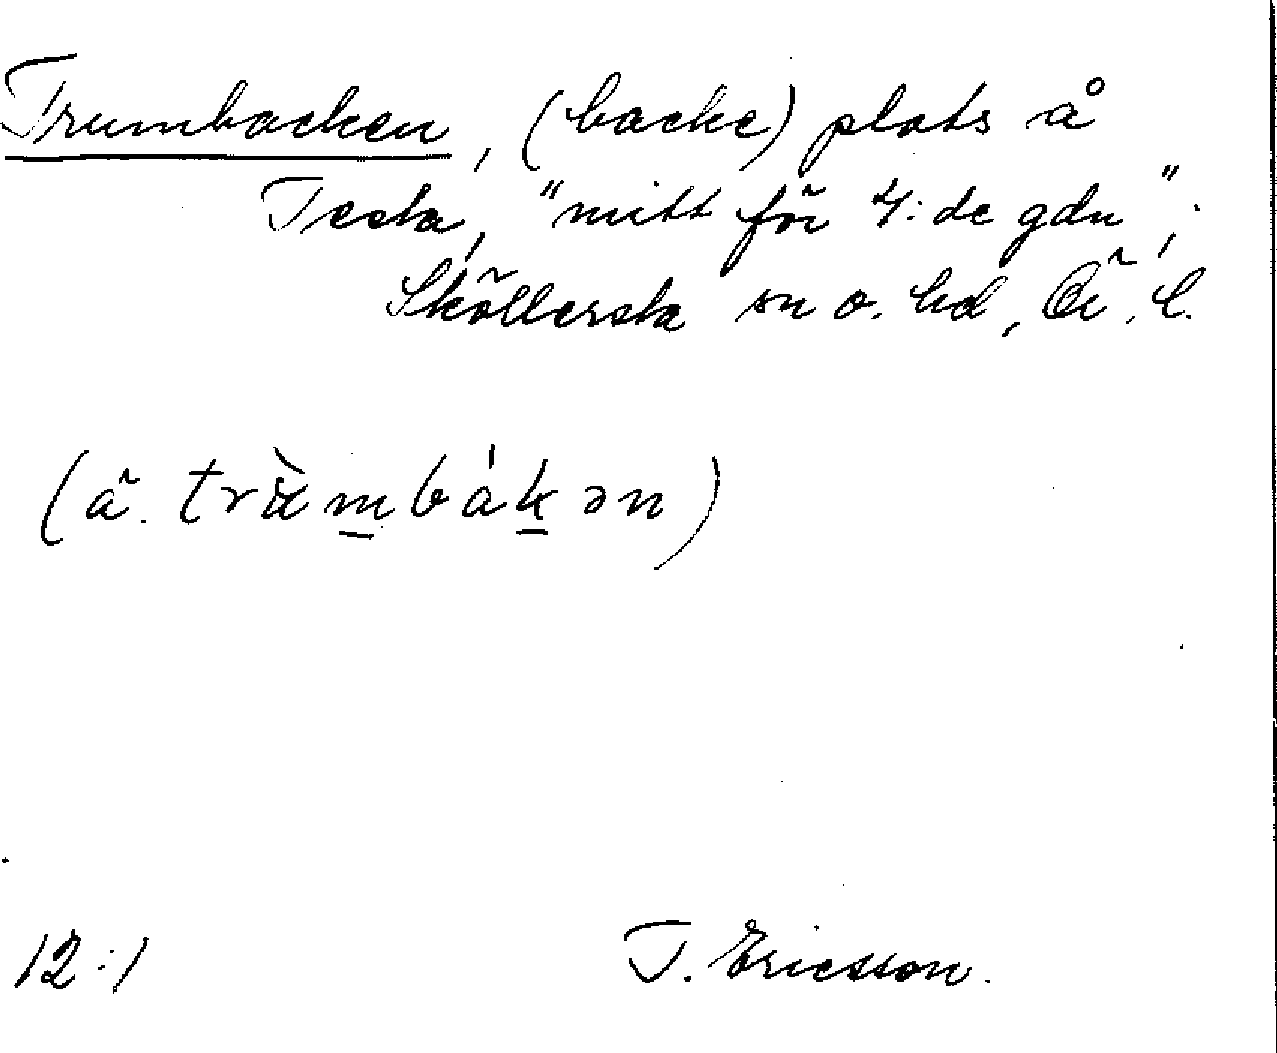 Trumbacken, (backe) plats å
Testa, "mitt för 4:de gdn",
Sköllersta sn o. hd, Ör. l.
(ä. trằmbákən)
12:1 T. Ericsson.